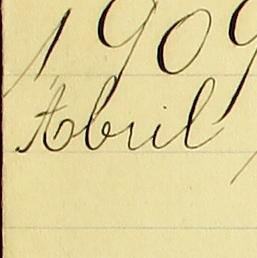 1909
Abril